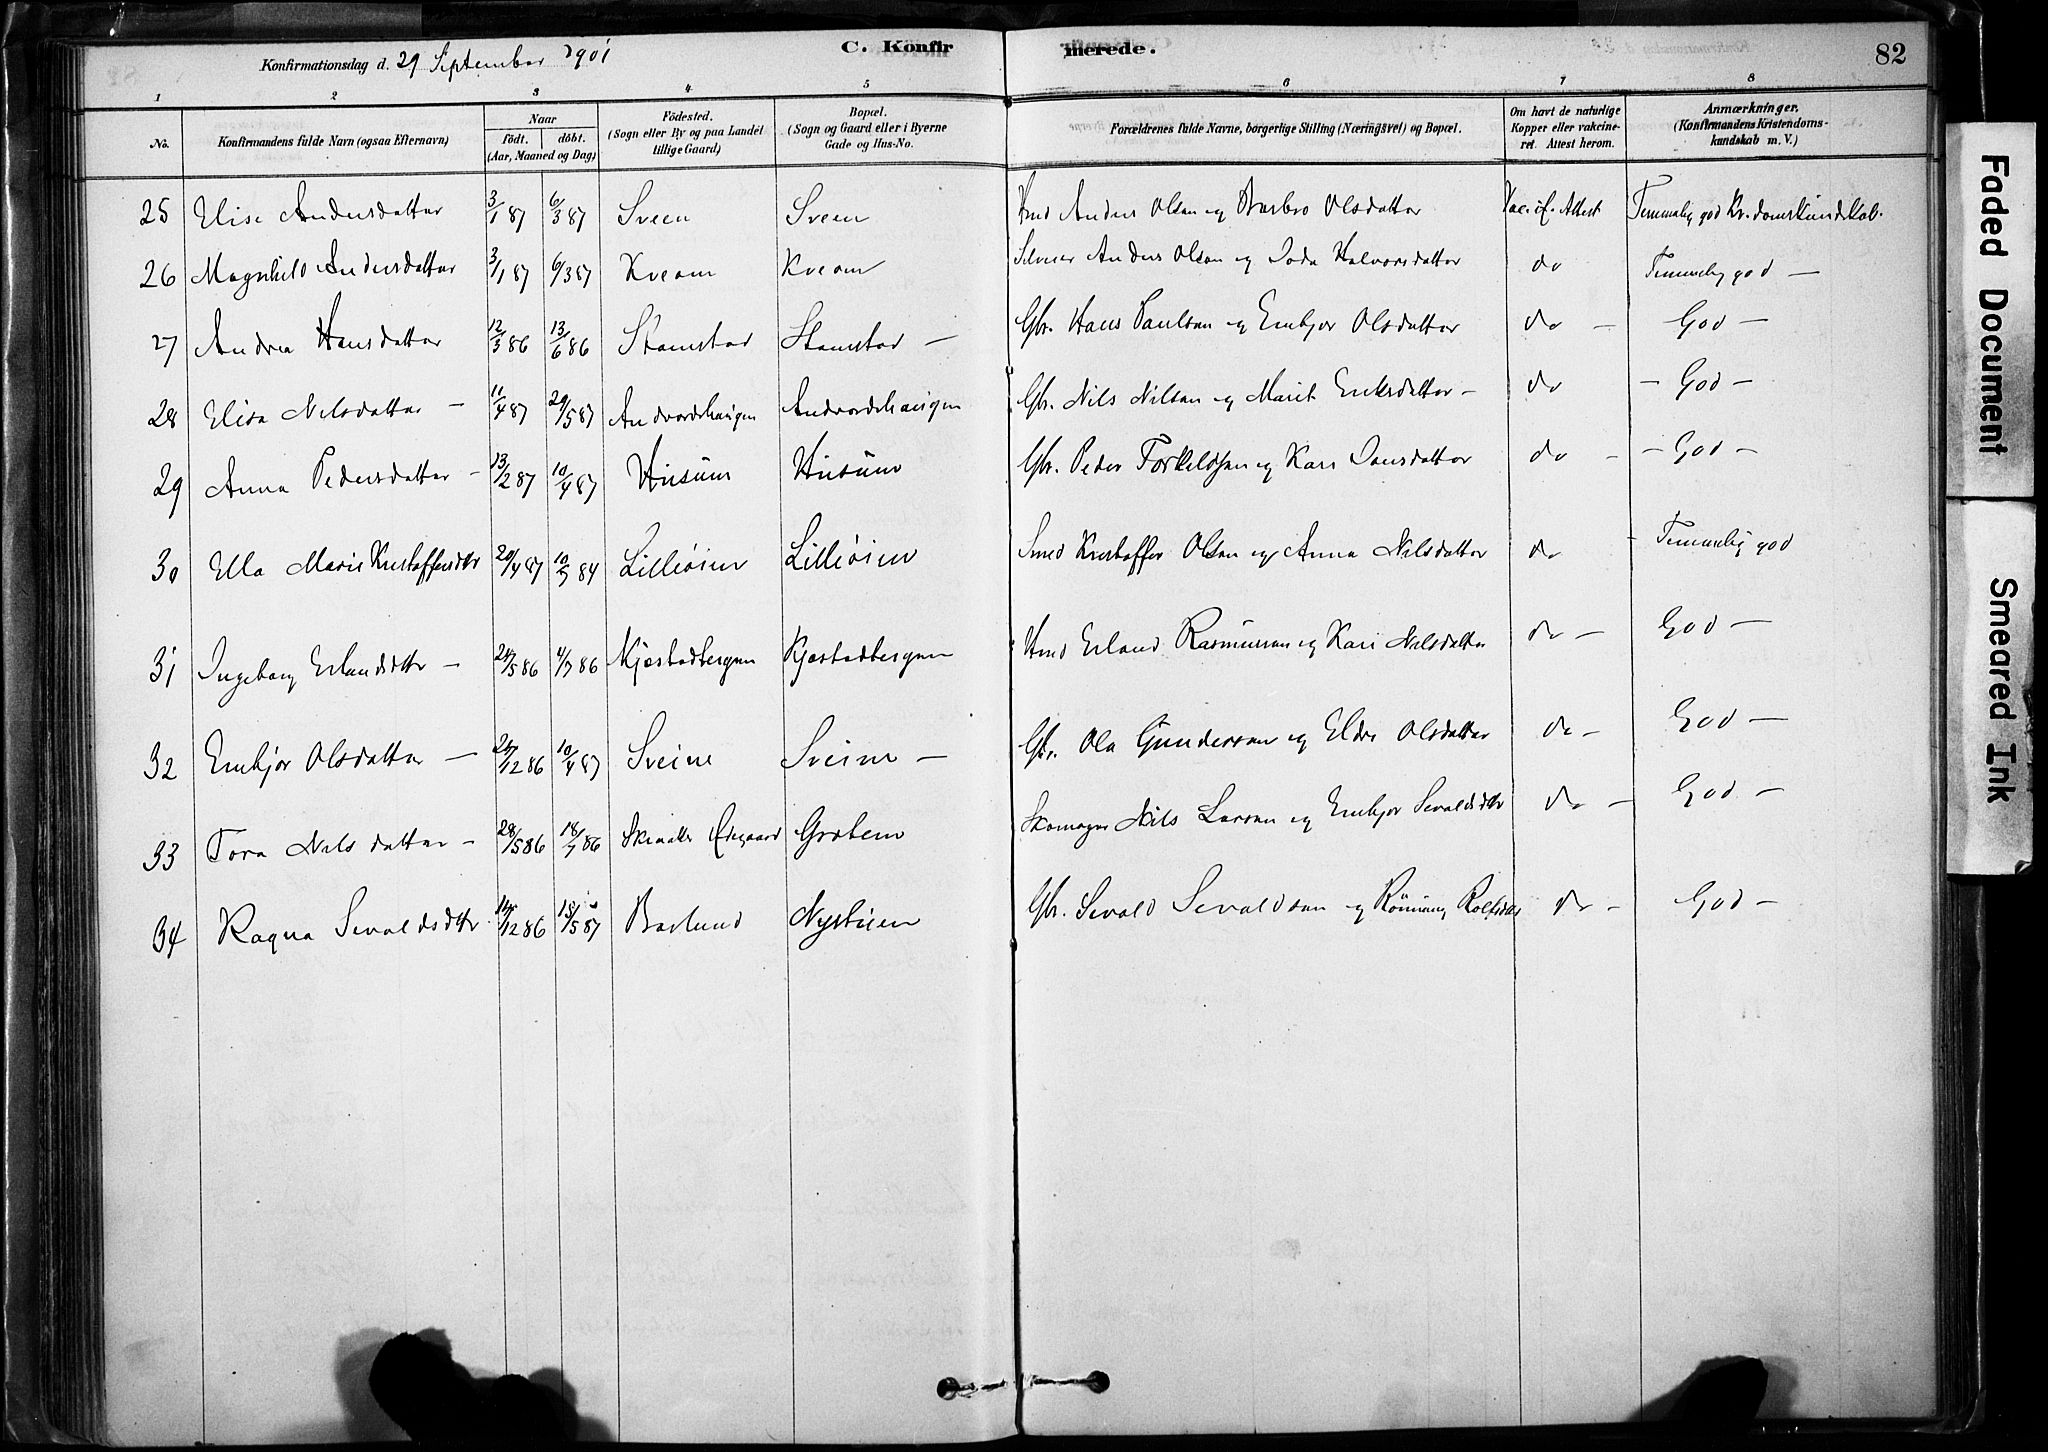 C. Konfirmerede.
82
Konfirmationsdag d. 29 September 1901
1 2 3 4 5 6 7 8
No.
Konfirmandens fulde Navn (ogsaa Efternavn)
Naar
födt. döbt.
(Aar, Maaned og Dag)
Födested.
(Sogn eller By og paa Landet
tillige Gaard)
Bopæl.
(Sogn og Gaard eller i Byerne
Gade og Hus-No.
Forældrenes fulde Navne, borgerlige Stilling (Næringsvei) og Bopæl.
Om havt de naturlige
Kopper eller vakcine-
ret. Attest herom.
Anmærkninger.
(Konfirmandens Kristendoms-
kundskab m. V.)
25 Elise Andersdatter 3/1 87 6/3 87 Sveen Sveen Hmd Anders Olsen og Barbro Olsdatter Vac. if. Attest Temmelig god Kr.domskundskab.
26 Magnhild Andersdatter 3/1 87 6/3 87 Kveom Kveom Anders Olsen og Halvorsdatter do Temmelig god —
27 Andrea Hansdatter 12/3 86 13/6 86 Stamstad Stamstad — Gbr. Hans Paulsen og Embjør Olsdatter do — God —
28 Elisa Nilsdatter — 11/4 87 29/5 87 Andvordshaugen Andvordshaugen Gbr. Nils Nilsen og Marit Eriksdatter — do — God —
29 Anna Pedersdatter — 13/2 87 10/4 87 Husum Husum Gbr. Peder Torkeldsen og Kari Jonsdatter do — — God —
30 Ella Marie Kristoffersdtr 20/4 87 10/7 84 Lilleøien Lilleøien Smed Kristoffer Olsen og Anna Nilsdatter do — Temmelig god
31 Ingeborg Erlandsdtr — 24/5 86 4/7 86 Kjøstadbergum Kjøstadbergum Hmd Erland Rasmussen og Kari Nilsdatter do — God —
32 Embjør Olsdatter — 24/12 86 10/4 87 Sveine Sveine — Gbr. Ola Gundersen og Eldri Olsdatter do — God —
33 Tora Nilsdatter — 28/5 86 18/7 86 Skjaaks Ødegaard Grotem Skomager Nils Larsen og Embjør Sevaldsdtr do — God —
34 Ragna Sevaldsdtr. 14/12 86 15/5 87 Barlund Nystuen Gbr. Sevald Sevaldsen og Rønnaug Rolfsdtr do — God —
Faded Document
Smeared Ink